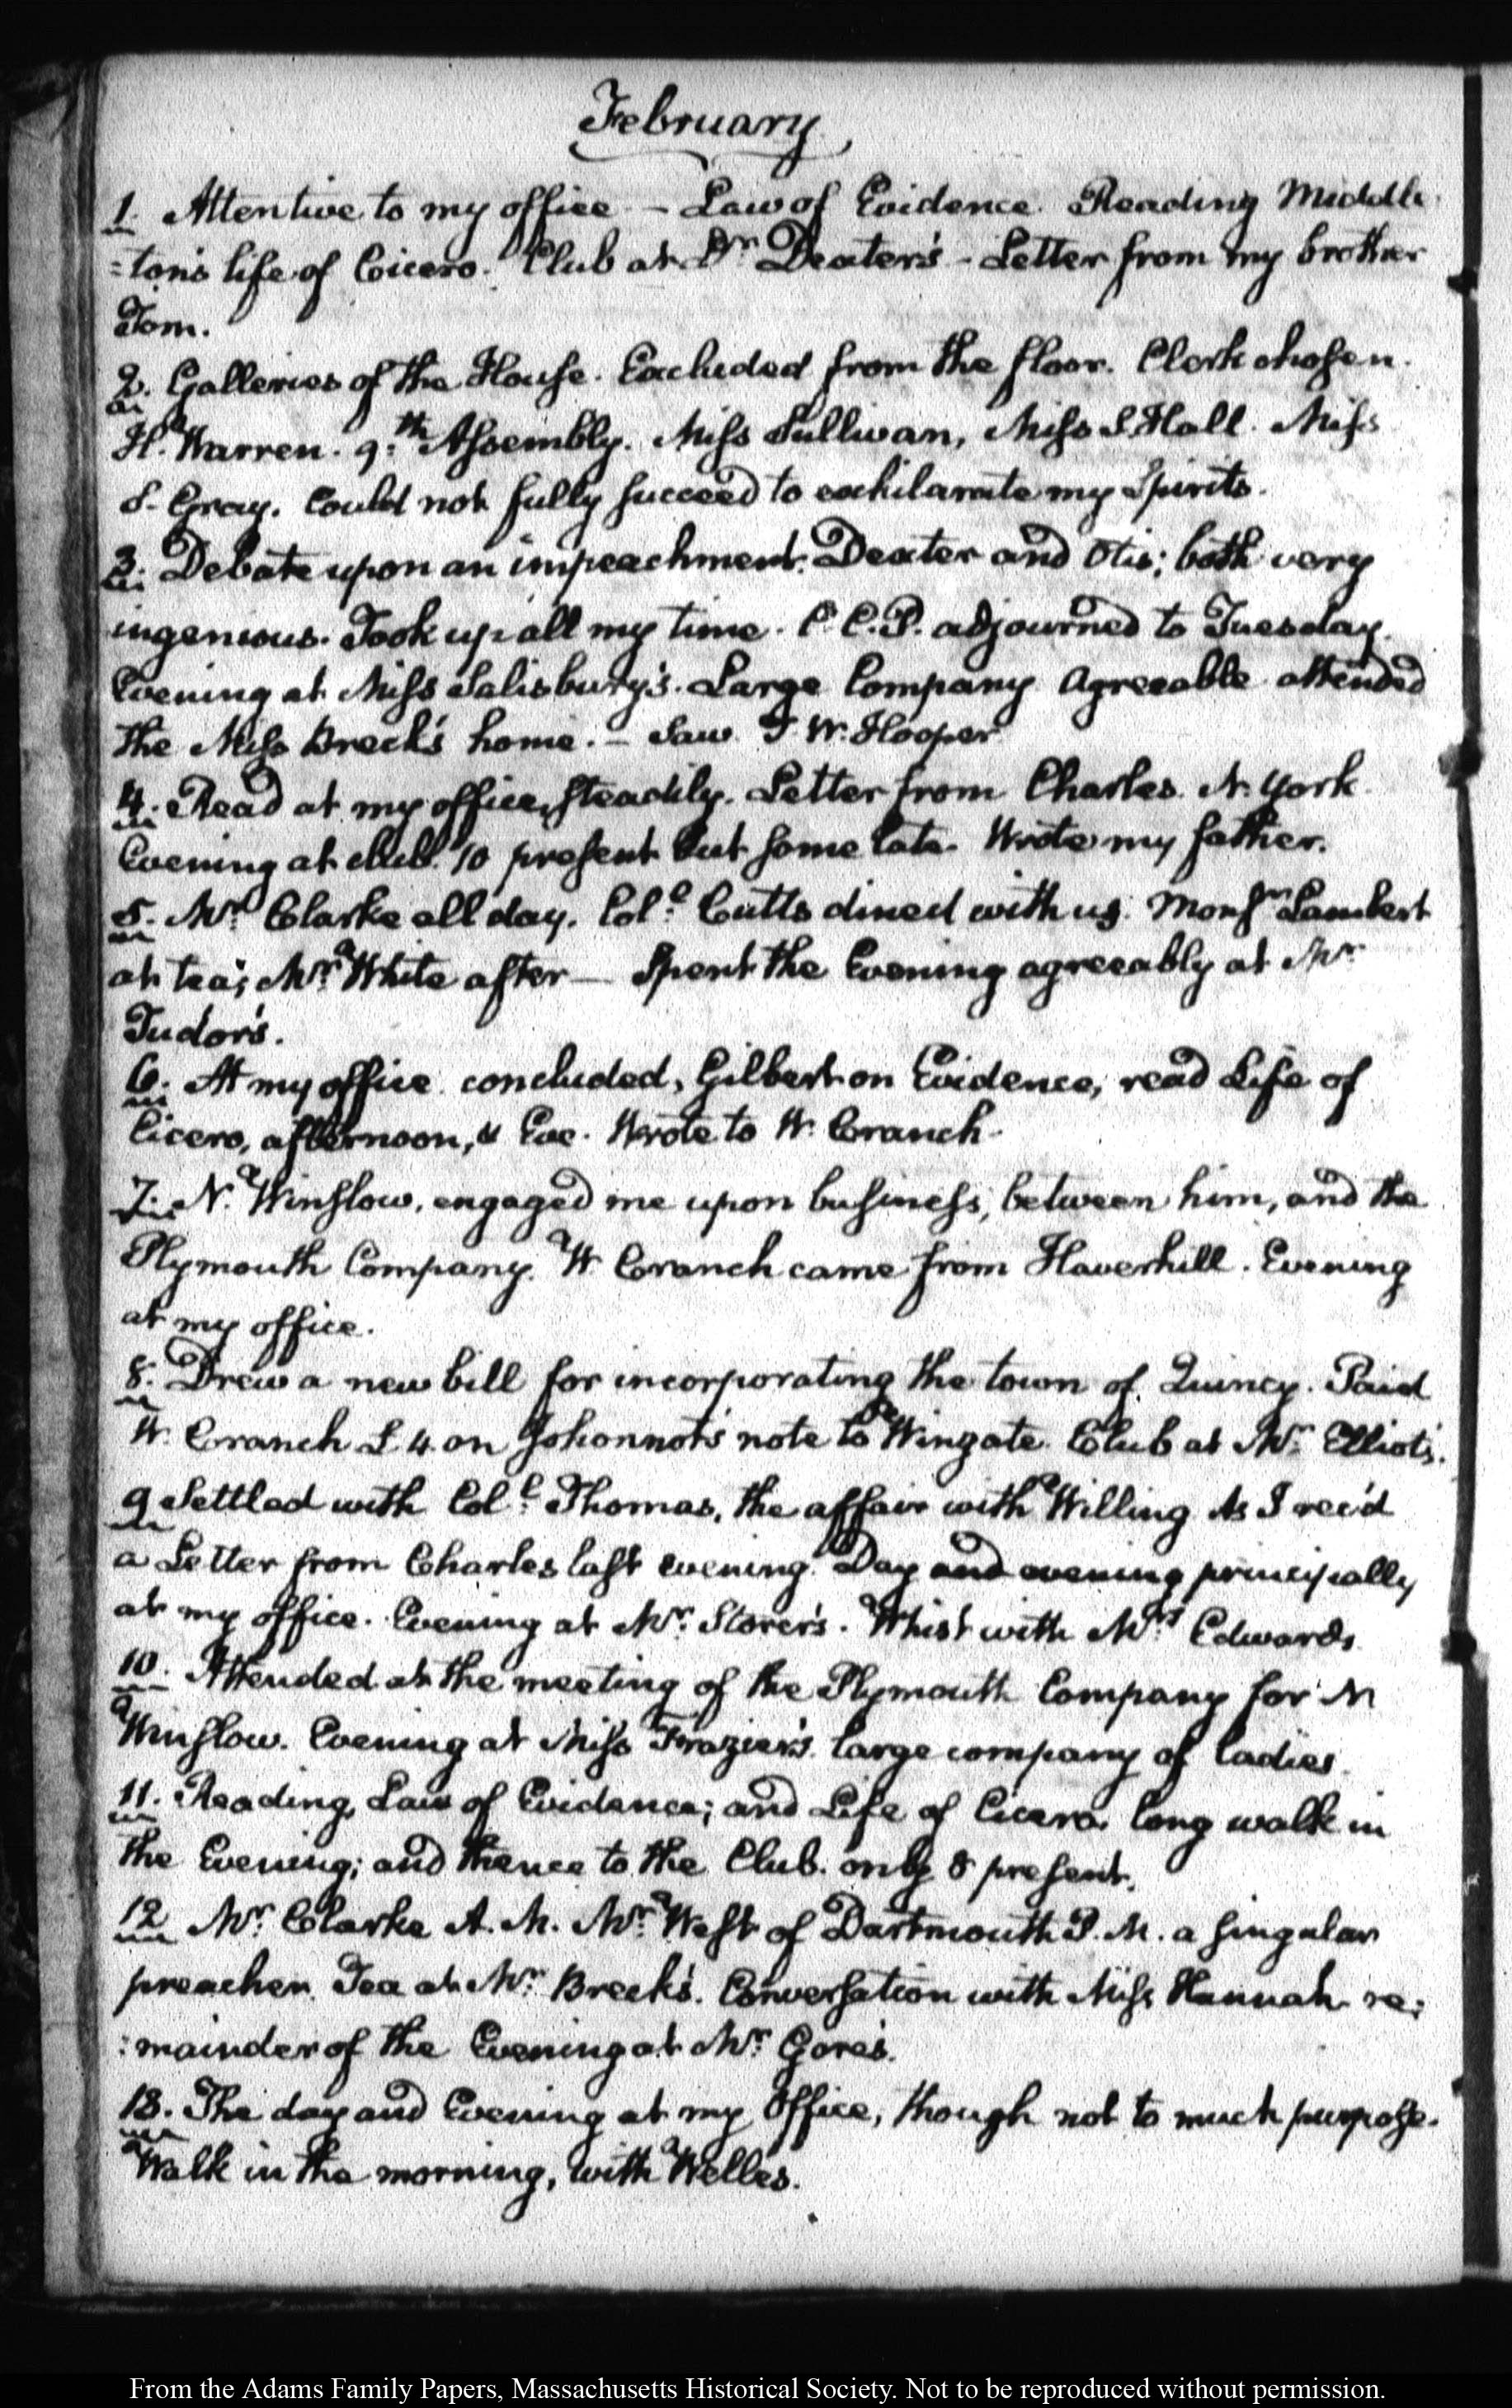 February
1. Attentive to my office — Law of Evidence. Reading Middle
=ton's life of Cicero. Club at Dr. Dexter's — Letter from my brother
Tom.
2. Galleries of the House. Excluded from the floor. Clerk chosen.
H. Warren. 9:th Assembly. Miss Sullivan, Miss S. Hall. Miss
S. Gray. Could not fully succeed to exhilarate my Spirits.
3. Debate upon an impeachment. Dexter and Otis; both very
ingenious. Took up all my time. C. C. P. adjourned to Tuesday.
Evening at Miss Salisbury's. Large Company. Agreeable attended
the Miss Breck's home. — Saw W. Hooper
4. Read at my office, steadily. Letter from Charles. N. York.
Evening at club. 10 present but some late. Wrote my father.
5. Mr. Clarke all day. Col.l Cutts dined with us. Monsr. Lambert
at tea; Mr. White after — Spent the Evening agreeably at Mr.
Tudor's.
6. At my office concluded, Gilbert on Evidence, read Life of
Cicero, afternoon, & Eve. Wrote to W. Cranch.
7. N. Winslow, engaged me upon business, between him, and the
Plymouth Company. W. Cranch came from Haverhill. Evening
at my office.
8. Drew a new bill for incorporating the town of Quincy. Paid
W. Cranch £ 4 on Johonnot's note to Wingate. Club at Mr. Elliot's.
9. Settled with Col.l Thomas, the affair with Willing. As I rec'd
a Letter from Charles last evening. Day and evening principally
at my office. Evening at Mr. Storer's. Whist with Mrs. Edwards.
10. Attended at the meeting of the Plymouth Company for N
Winslow. Evening at Miss Frazier's. large company of ladies.
11. Reading, Law of Evidence; and Life of Cicero. long walk in
the Evening; and thence to the Club. only 8 present.
12 Mr. Clarke A. M. Mr. West of Dartmouth P. M. a singular
preacher. Tea at Mr. Breck's. Conversation with Miss Hannah. re=
=mainder of the Evening at Mr. Gore's.
13. The day and Evening at my Office, though not to much purpose.
Walk in the morning, with Welles.
From the Adams Family Papers, Massachusetts Historical Society. Not to be reproduced without permission.